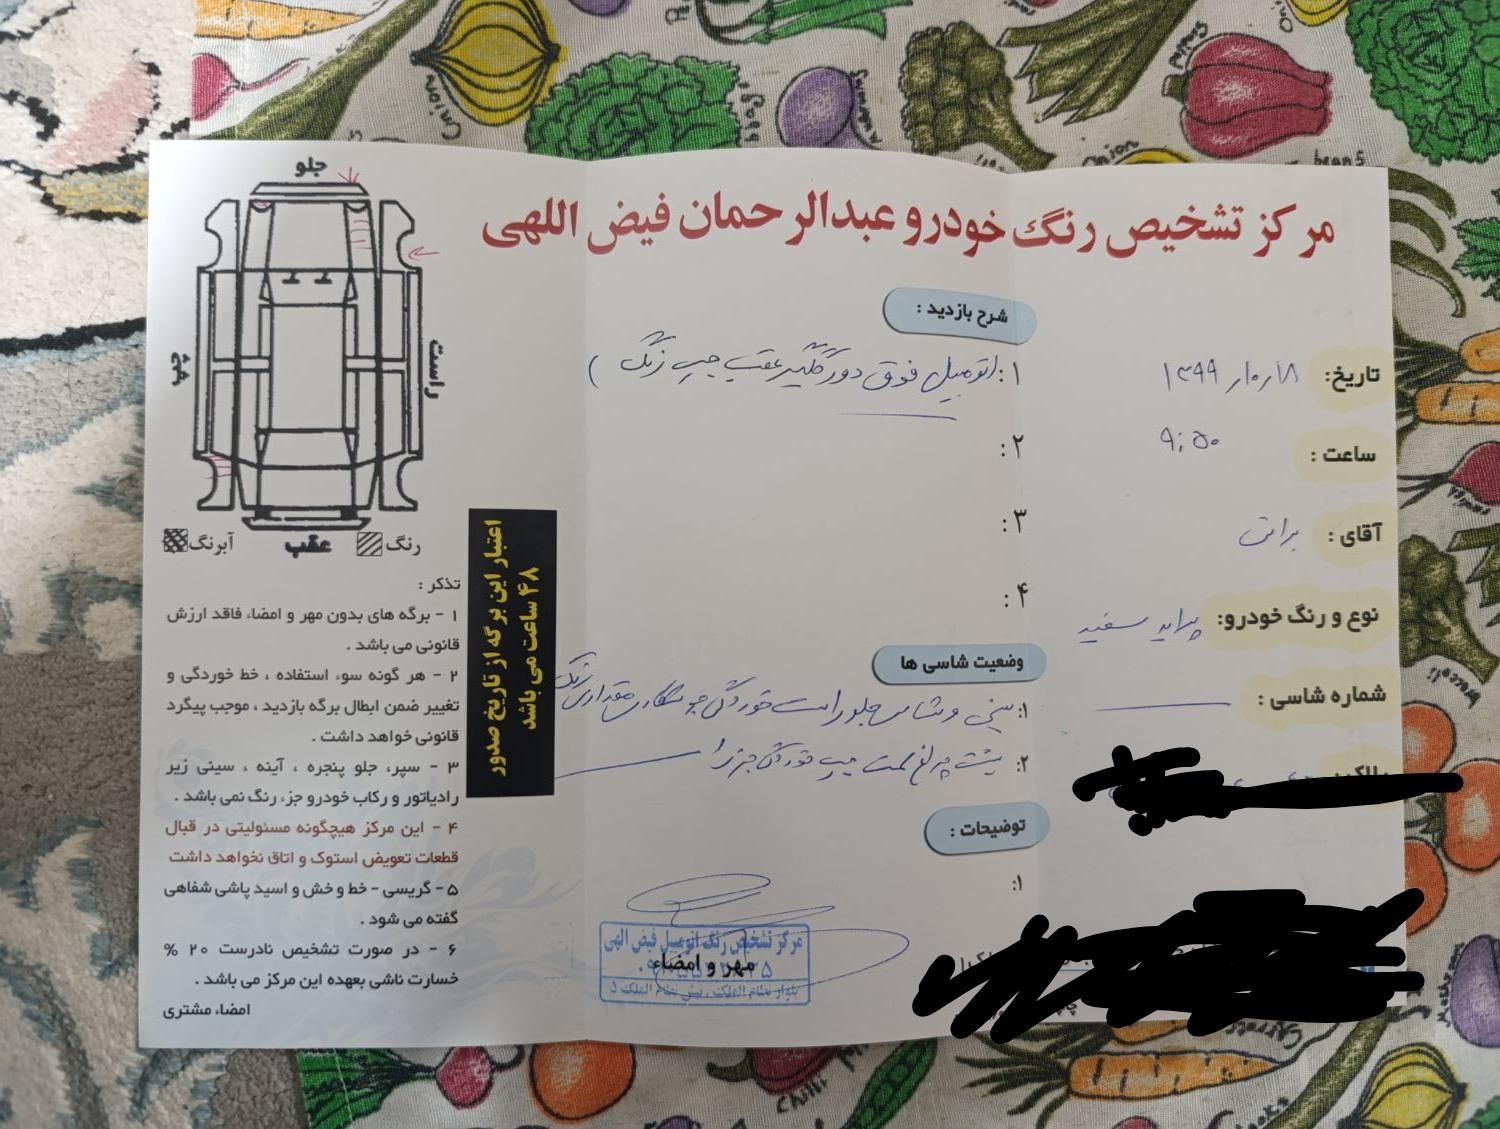 مرکز تشخیص رنگ خودرو عبدالرحمان فیض اللهی
تاریخ:
ساعت : ۹:۵۰
آقای : براتی
نوع و رنگ خودرو: پراید سفید
شماره شاسی :
شرح بازدید :
۱ : اتومبیل فوق دور گلگیر عقب چپ رنگ )
۲ :
۳ :
۴ :
وضعیت شاسی ها
۱: سینی و شاسی جلو راست خوردگی مقداری رنگ
۲: پشت چراغ سمت چپ خوردگی جزء
توضیحات :
۱:
مرکز تشخیص رنگ اتومبیل فیض الهی
مهر و امضاء
بلوار نظام الملک . نبش نظام الملک ۵
جلو
چپ
راست
عقب
رنگ
آبرنگ
اعتبار این برگه از تاریخ صدور
۴۸ ساعت می باشد
تذکر :
۱ - برگه های بدون مهر و امضاء فاقد ارزش
قانونی می باشد .
۲ - هر گونه سوء استفاده ، خط خوردگی و
تغییر ضمن ابطال برگه بازدید ، موجب پیگرد
قانونی خواهد داشت .
۳ - سپر، جلو پنجره ، آینه ، سینی زیر
رادیاتور و رکاب خودرو جز، رنگ نمی باشد .
۴ - این مرکز هیچگونه مسئولیتی در قبال
قطعات تعویض استوک و اتاق نخواهد داشت
۵- گریسی - خط و خش و اسید پاشی شفاهی
گفته می شود .
۶ - در صورت تشخیص نادرست ۲۰ %
خسارت ناشی بعهده این مرکز می باشد .
امضاء مشتری
Onion
Onion
beans
chilli